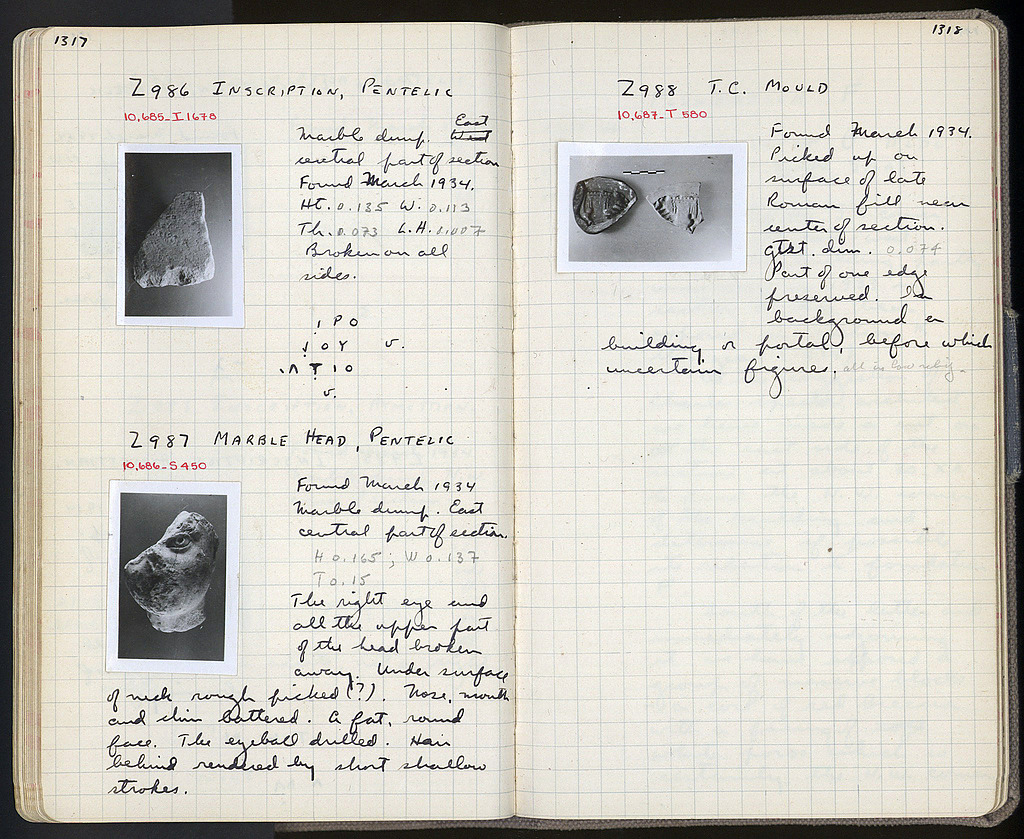 1317
Z986 INSCRIPTION, PENTELIC
10,685-I 1678
Marble dump. East
central part of section
Found March 1934.
Ht. 0.185 W. 0.113
Th. 0.073 L.H. 0.007
Broken on all
sides.
Ι Ρ Ο
Ο Υ v.
Τ Ι Ο
v.
Z987 MARBLE HEAD, PENTELIC
10,686-S 450
Found March 1934
Marble dump. East
central part of section.
H 0.165; W 0.137
T 0.15
The right eye and
all the upper part
of the head broken
away. Under surface
of neck rough picked (?). Nose, mouth
and chin battered. A fat, round
face. The eyeball drilled. Hair
behind rendered by short shallow
strokes.
1318
Z988 T.C. MOULD
10,687-T 580
Found March 1934.
Picked up on
surface of late
Roman fill near
center of section.
gtst. dim. 0.074
Part of one edge
preserved. In
background a
building or portal, before which
uncertain figures. all in low relief.